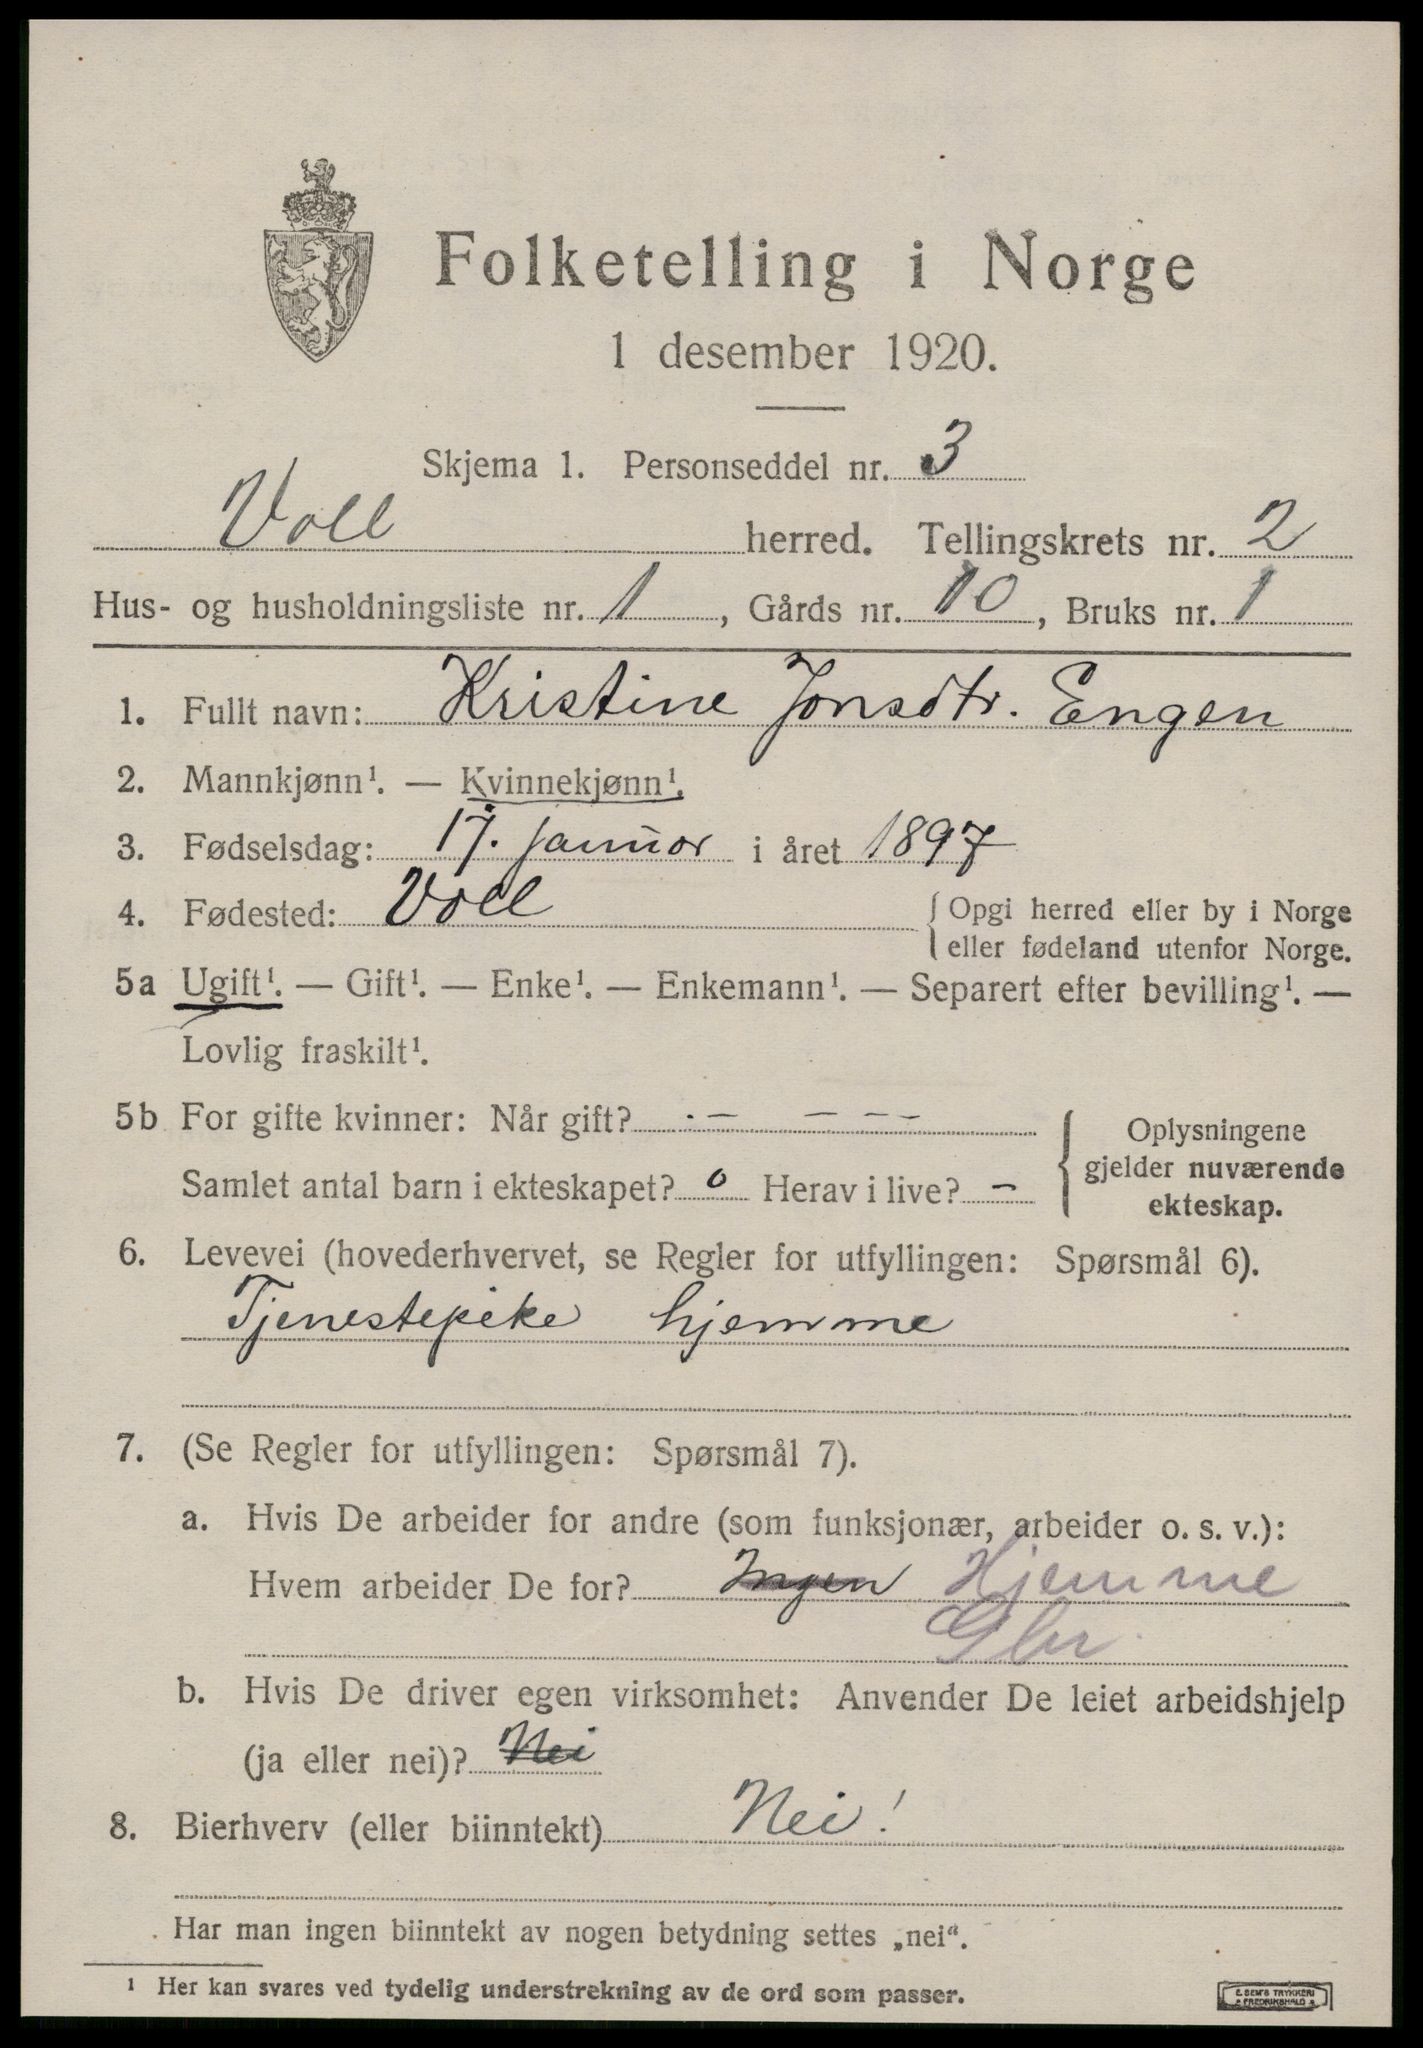 Folketelling i Norge
1 desember 1920.
Skjema 1. Personseddel nr. 3
Voll herred. Tellingskrets nr. 2
Hus- og husholdningsliste nr. 1, Gårds nr. 10, Bruks nr. 1
1. Fullt navn: Kristine Jonsdtr. Engen
2. Mannkjønn¹. — Kvinnekjønn¹.
3. Fødselsdag: 17. januar i året 1897
4. Fødested: Voll { Opgi herred eller by i Norge
eller fødeland utenfor Norge.
5a Ugift¹. — Gift¹. — Enke¹. — Enkemann¹. — Separert efter bevilling¹. —
Lovlig fraskilt¹.
5b For gifte kvinner: Når gift? .— — — —
Samlet antal barn i ekteskapet? 0 Herav i live? –
Oplysningene
gjelder nuværende
ekteskap.
6. Levevei (hovederhvervet, se Regler for utfyllingen: Spørsmål 6).
Tjenestepike hjemme
7. (Se Regler for utfyllingen: Spørsmål 7).
a. Hvis De arbeider for andre (som funksjonær, arbeider o. s. v.):
Hvem arbeider De for? Ingen Hjemme
Gbr.
b. Hvis De driver egen virksomhet: Anvender De leiet arbeidshjelp
(ja eller nei)? Nei
8. Bierhverv (eller biinntekt) Nei!
Har man ingen biinntekt av nogen betydning settes „nei“.
¹ Her kan svares ved tydelig understrekning av de ord som passer.
E. SEM'S TRYKKERI
FREDRIKSHALD